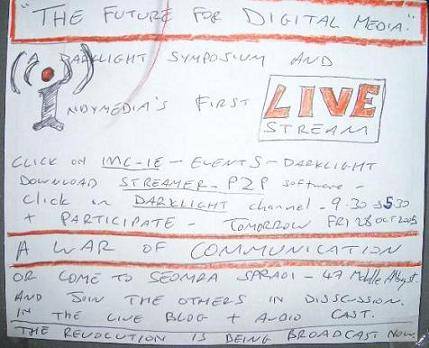 "THE FUTURE FOR DIGITAL MEDIA."
DARKLIGHT SYMPOSIUM AND
INDYMEDIA'S FIRST
LIVE
STREAM
CLICK ON IMC-IE - EVENTS - DARKLIGHT
DOWNLOAD STREAMER - P2P software -
click on DARKLIGHT channel - 9.30 5.30
+ PARTICIPATE - TOMORROW FRI 28 OCT 2005
A WAR OF COMMUNICATION
OR COME TO SEOMRA SPRAOI - 47 Middle Abbey St.
AND JOIN THE OTHERS IN DISSCUSSION.
IN THE LIVE BLOG + AUDIO CAST.
THE REVOLUTION IS BEING BROADCAST NOW.